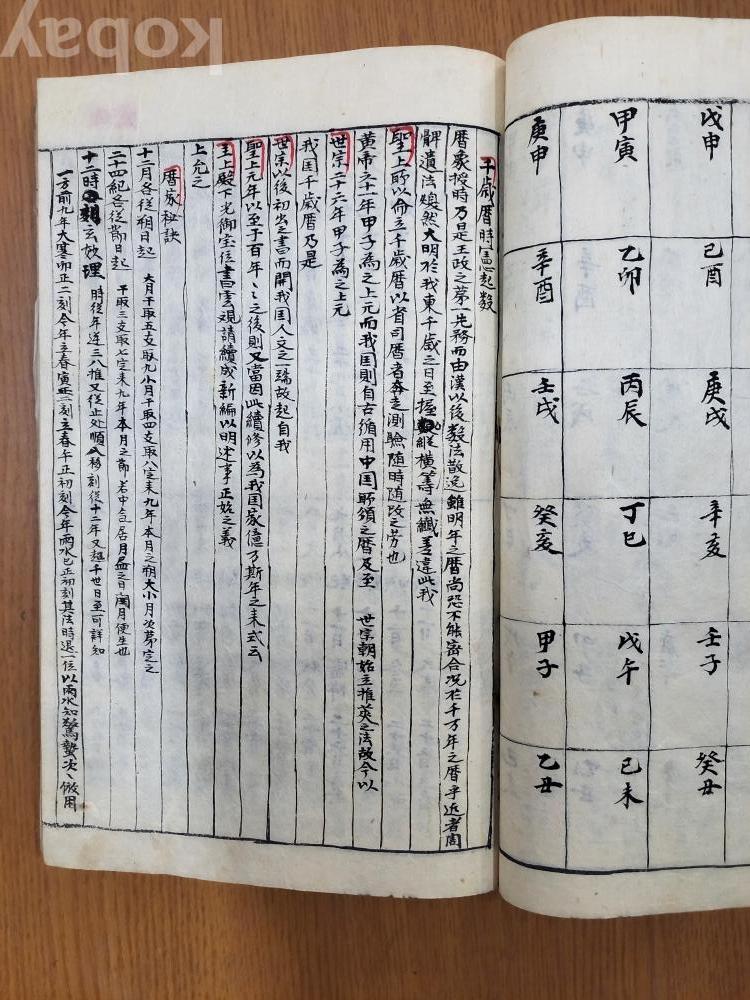 戊申
己酉
庚戌
辛亥
壬子
癸丑
甲寅
乙卯
丙辰
丁巳
戊午
己未
庚申
辛酉
壬戌
癸亥
甲子
乙丑
千歳暦時憲起数
暦象授時乃是王政之第一先務而由漢以後数法散逸雖明年之暦尚恐不能密合况於千万年之暦乎近者周
髀遺法煥然大明於我東千歳之日至握縦横筭無纎差違此我
聖上所以命立千歳暦以省司暦者奔走測驗随時随改之労也
黄帝六十一年甲子為之上元而我国則自古循用中国所頒之暦及至 世宗朝始立推英之法故今以
世宗二十六年甲子為之上元
我国千歳暦乃是
世宗以後初出之書而開我国人文之一端故起自我
聖上元年以至于百年々之後則又當因此續修以為我国家億乃斯年之未式云
主上殿下光御宝位書雲観請續成新編以明述事正始之義
上允之
暦家秘訣
十二月各従朔日起 大月干取五支取九小月干取四支取八定未九年本月之朔大小月次第定之
二十四紀各従節日起 干取三支取七定未九年本月之節若中气居月盡之日閏月便生也
十二時刻玄妙理 時従年逆三八推又従止处順八移刻従十二年又起千世日至可詳知
一方前九年大寒卯正二刻今年立春寅正二刻立春午正初刻今年雨水巳正初刻其法時退一位以雨水知驚蟄次々倣用
kobay